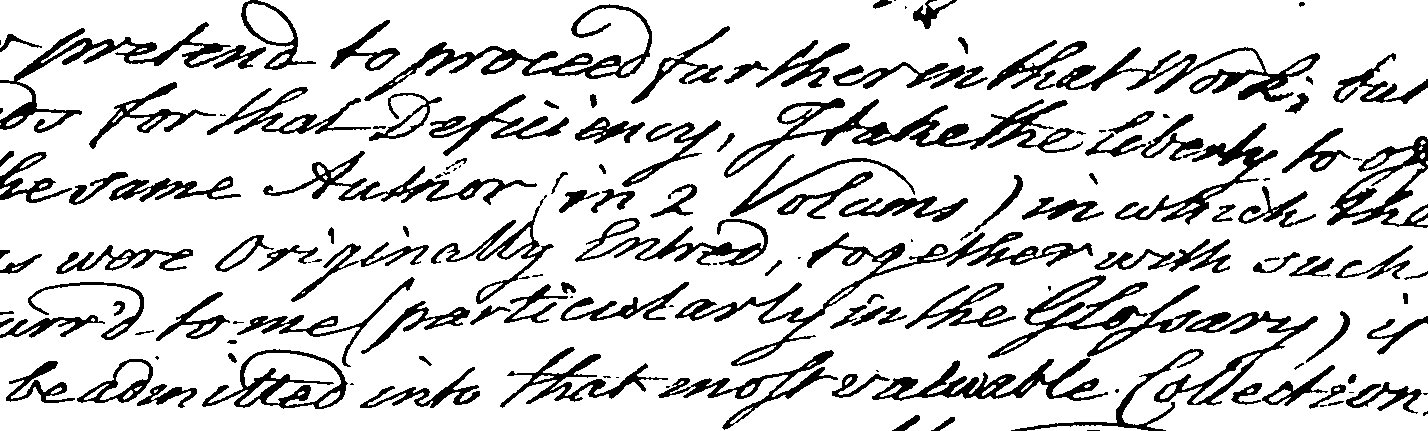 pretend to proceed further in that Work; but
for that Deficiency, I take the liberty to
the same Author (in 2 Volums) in which the
were Originally Entred, together with such
to me (particularly in the Glossary) if
be admitted into that most valuable Collection